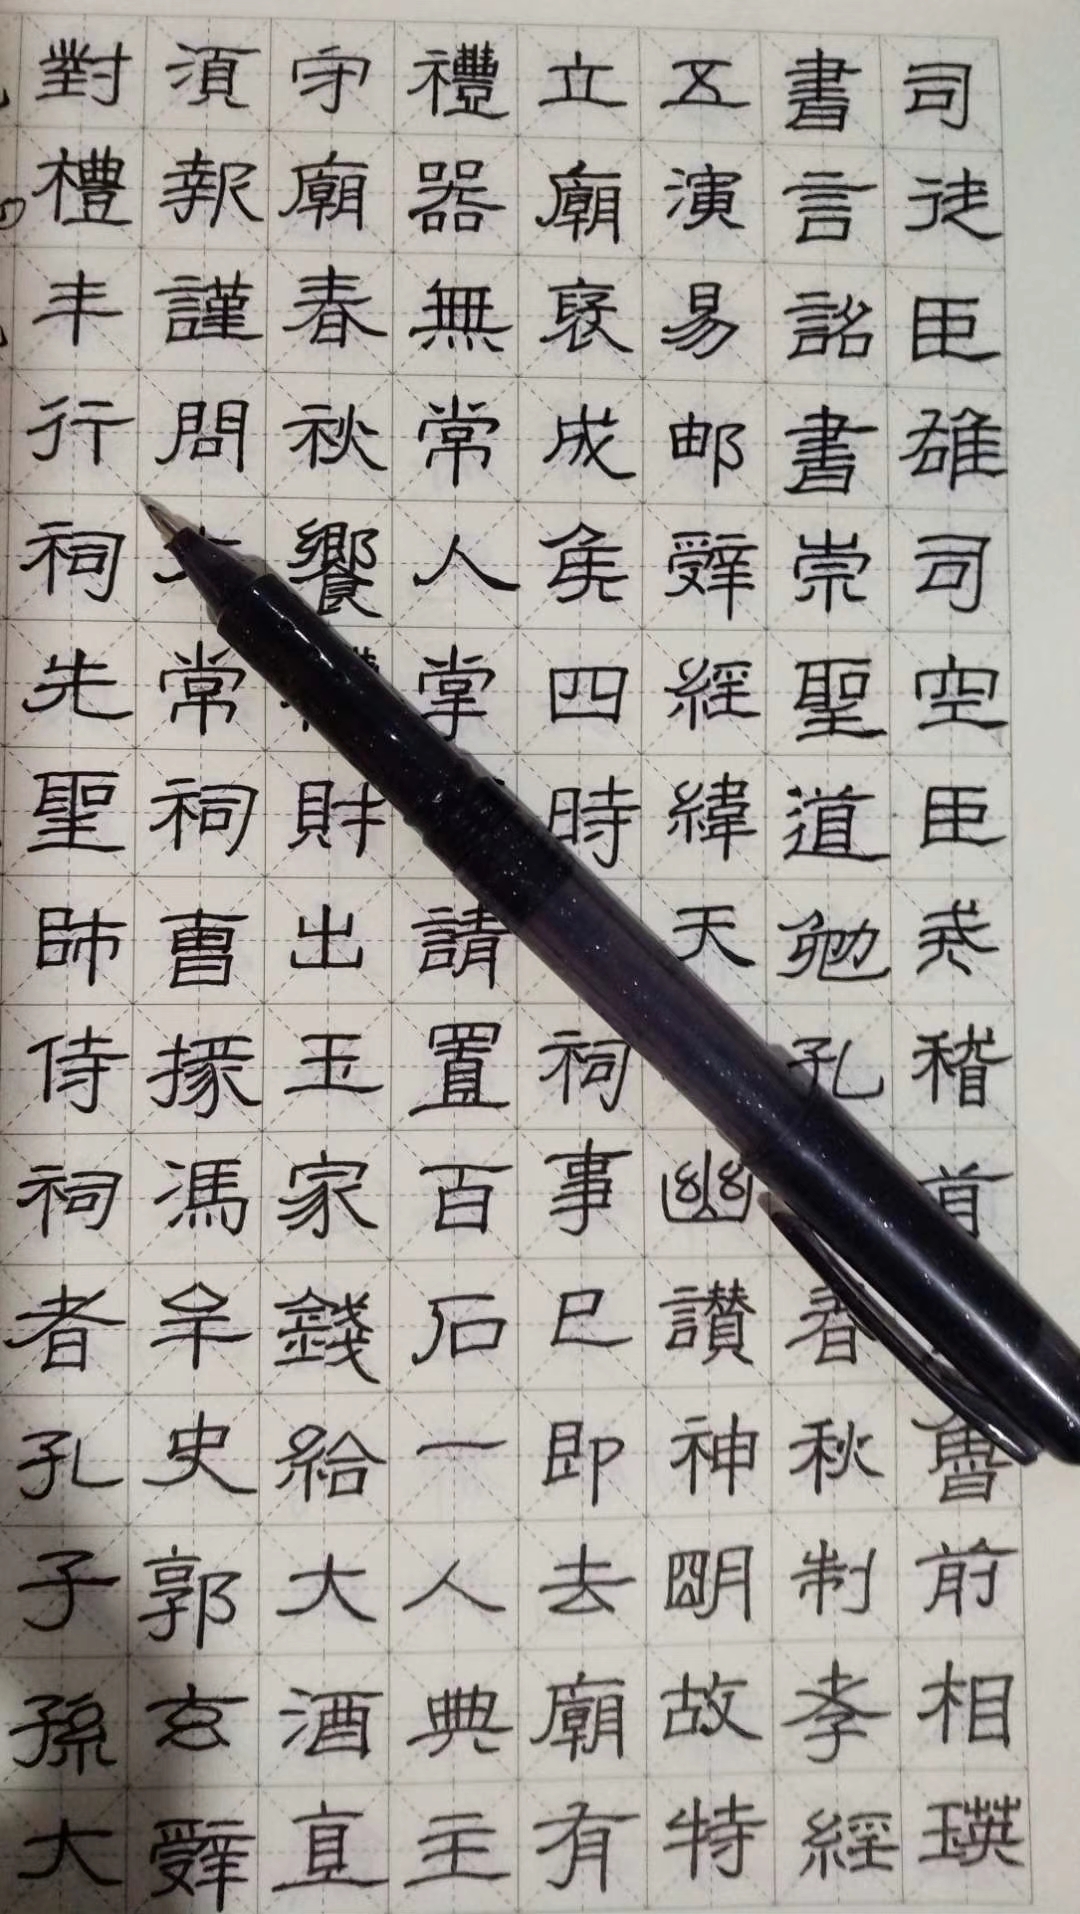 司徒臣雄司空臣戒稽首魯前相瑛
書言詔書崇聖道勉孔春秋制孝經
五演易邮辭經緯天幽讃神朙故特
立廟褒成侯四時祠事已即去廟有
禮器無常人掌請置百石一人典主
守廟春秋饗財出王家錢給大酒直
須報謹問常祠曹掾馮牟史郭玄辭
對禮丰行祠先聖師侍祠者孔子孫大